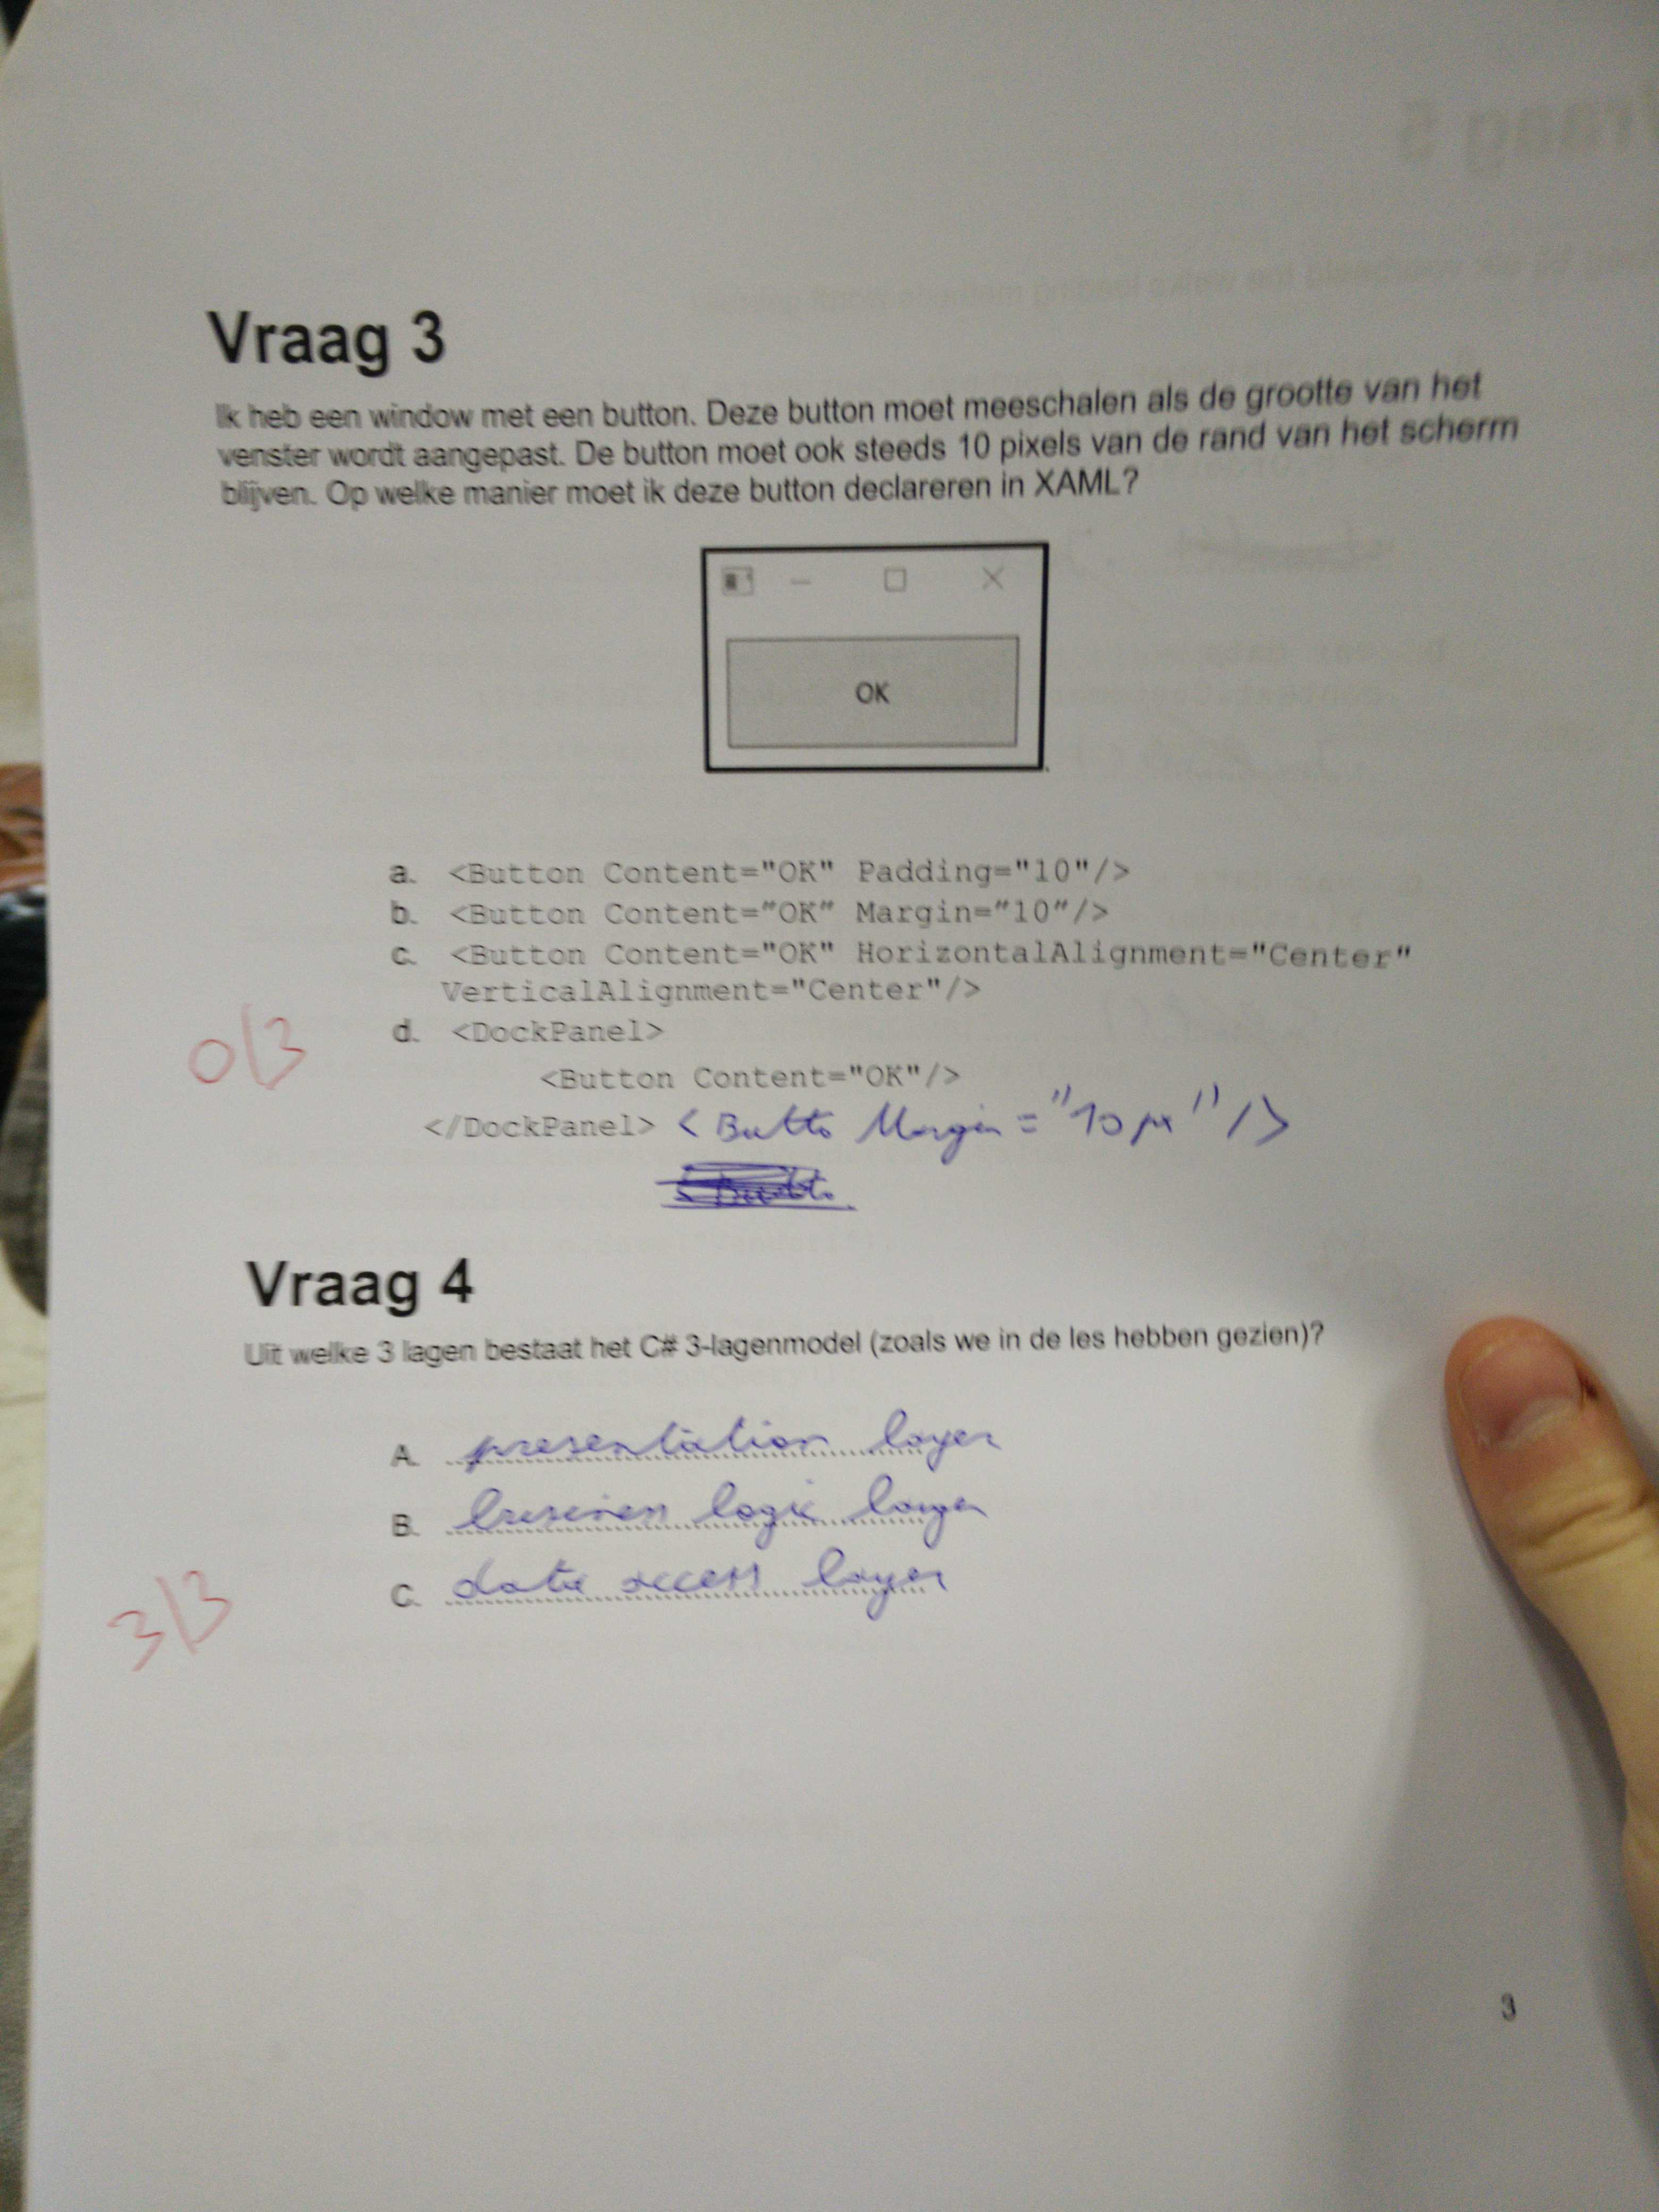 Vraag 3
Ik heb een window met een button. Deze button moet meeschalen als de grootte van het
venster wordt aangepast. De button moet ook steeds 10 pixels van de rand van het scherm
blijven. Op welke manier moet ik deze button declareren in XAML?
OK
a. <Button Content="OK" Padding="10"/>
b. <Button Content="OK" Margin="10"/>
c. <Button Content="OK" HorizontalAlignment="Center"
VerticalAlignment="Center"/>
0/3
d. <DockPanel>
<Button Content="OK"/>
</DockPanel> <Butto Margin="10px"/>
Vraag 4
Uit welke 3 lagen bestaat het C# 3-lagenmodel (zoals we in de les hebben gezien)?
A. presentation layer
B. logic layer
C. data access layer
3/3
3